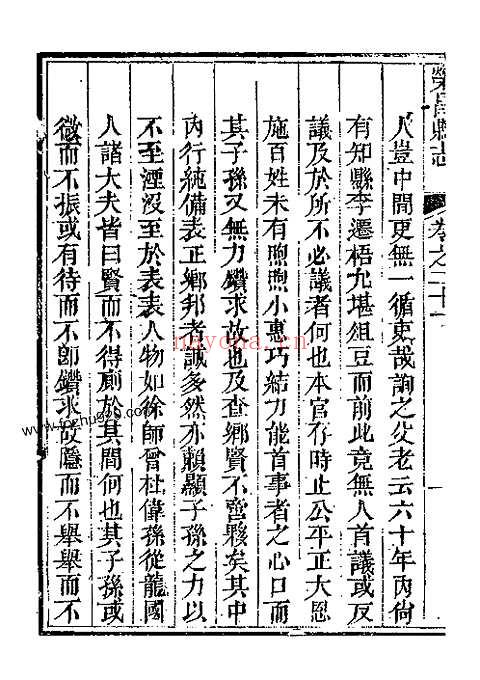 榮昌縣志 卷之二十一
人豈中間更無一循吏哉詢之父老云六十年內尙
有知縣李遷梧尤堪俎豆而前此竟無人首議或反
議及於所不必議者何也本官存時止公平正大恩
施百姓未有煦煦小惠巧結力能首事者之心口而
其子孫又無力鑽求故也及查鄉賢不啻夥矣其中
內行純備表正鄉邦者誠多然亦賴顯子孫之力以
不至湮沒至於表表人物如徐師會杜偉孫從龍國
人諸大夫皆曰賢而不得廁於其間何也其子孫或
微而不振或有待而不卽鑽求故隱而不舉舉而不
nayona.cn